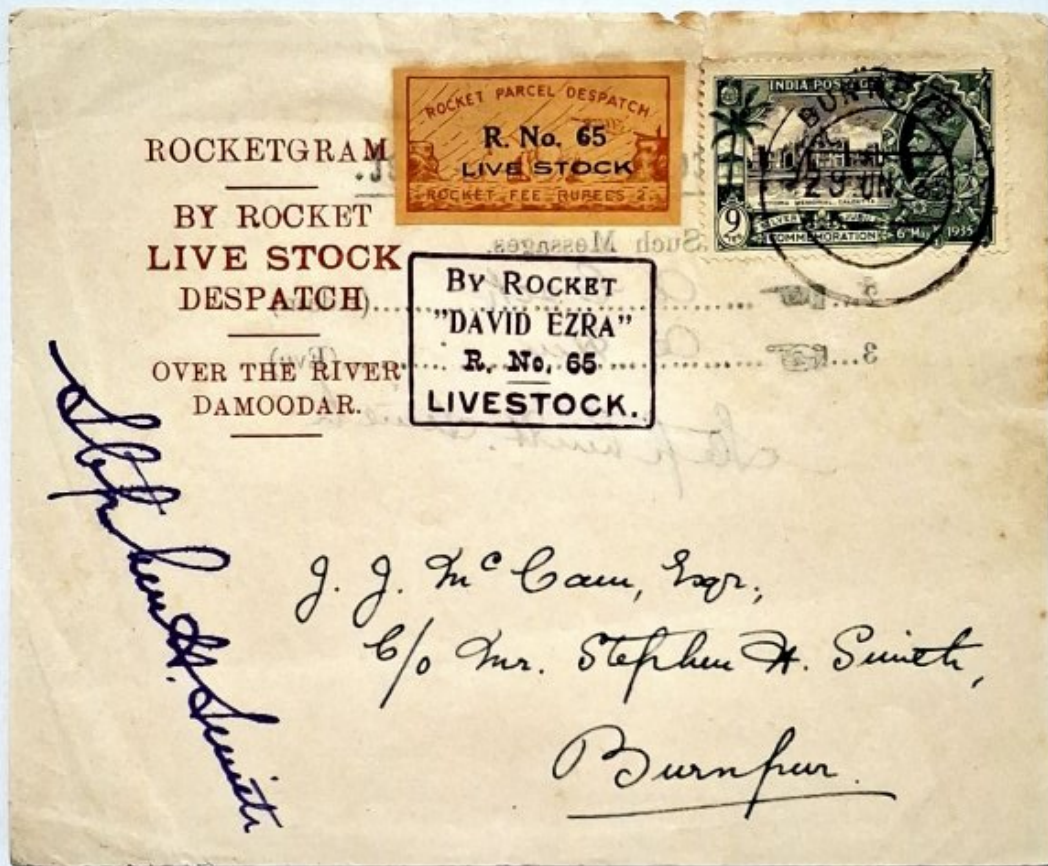 ROCKETGRAM
BY ROCKET
LIVE STOCK
DESPATCH
OVER THE RIVER
DAMOODAR.
ROCKET PARCEL DESPATCH
R. No. 65
LIVE STOCK
ROCKET FEE RUPEES 2.
INDIA POSTAGE
VICTORIA MEMORIAL, CALCUTTA
SILVER JUBILEE
9 COMMEMORATION 6th May 1935
BURNPUR
29 JUN 35
Such Messages.
2.
3.
BY ROCKET
"DAVID EZRA"
R. No. 65
LIVESTOCK.
Stephen H. Smith
J. J. McCam, Esqr.,
C/o Mr. Stephen H. Smith,
Burnpur.